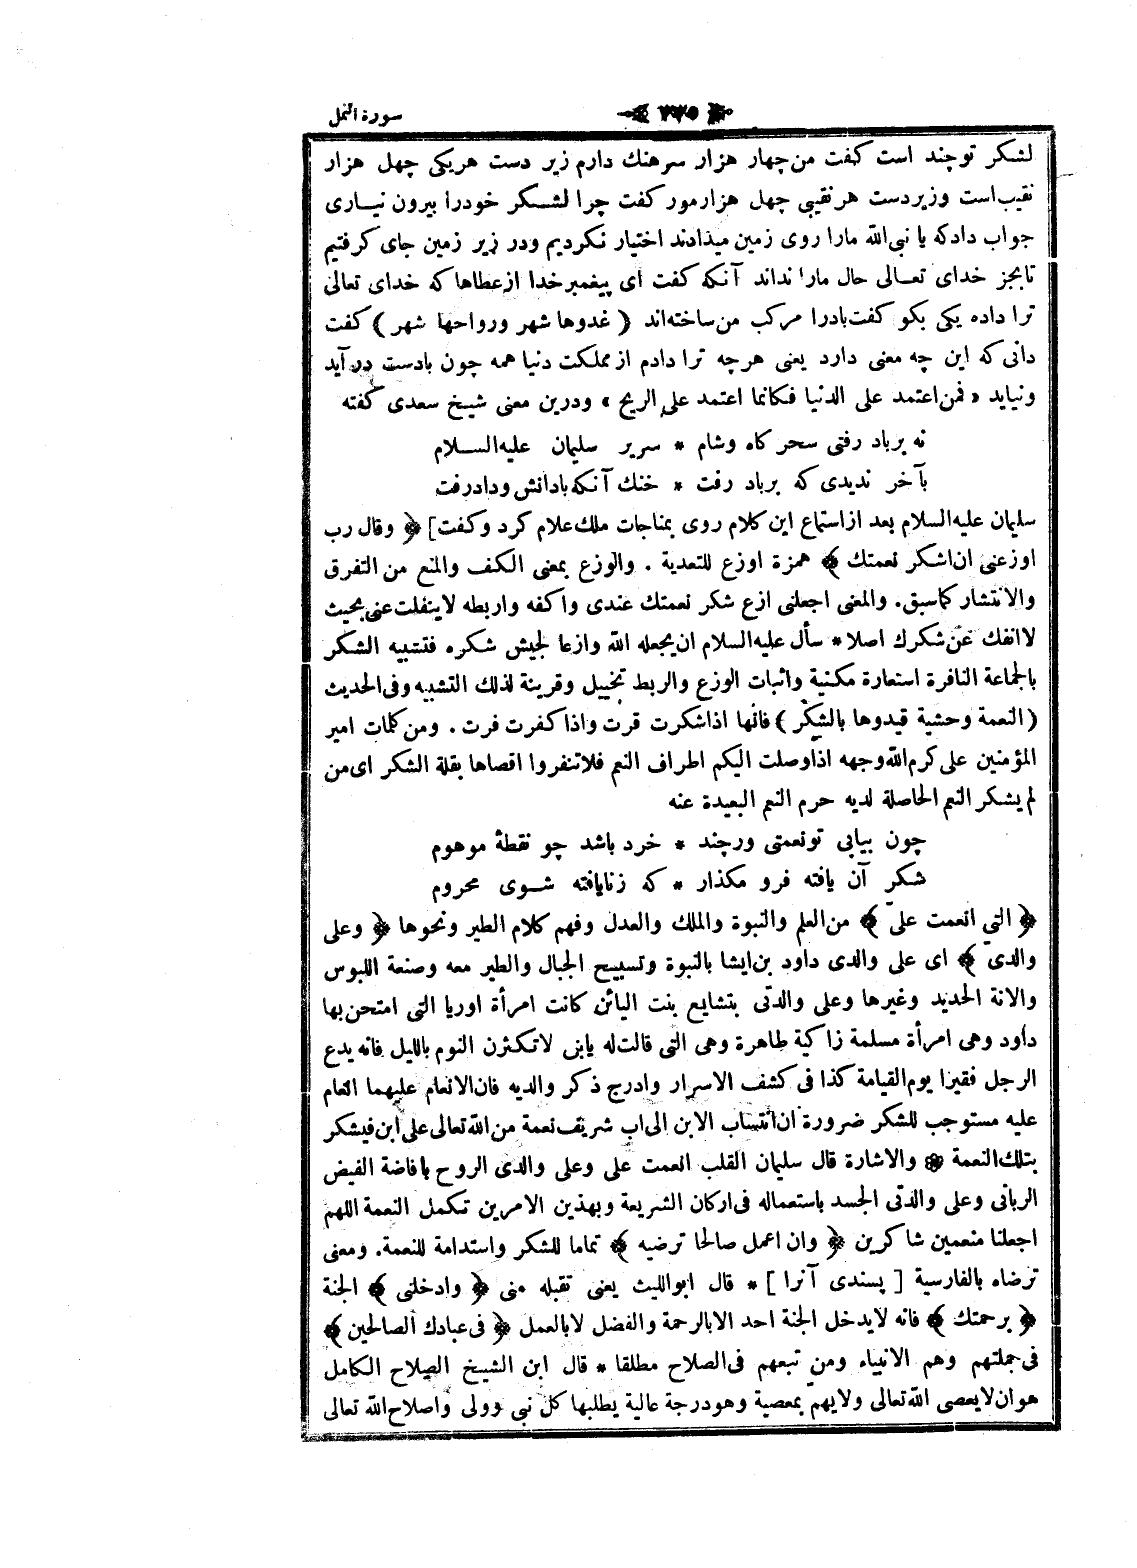 سورة النمل
٣٣٥
لشكر توچند است كفت من چهار هزار سرهنك دارم زير دست هريكى چهل هزار
نقيب است وزيردست هر نقيبى چهل هزارمور كفت چرا لشكر خودرا بيرون نيارى
جواب دادكه يا نبى الله مارا روى زمين ميدادند اختيار نكرديم ودر زير زمين جاى كرفتيم
تابجز خداى تعالى حال مارا نداند آنكه كفت اى پيغمبر خدا ازعطاها كه خداى تعالى
ترا داده يكى بكو كفت بادرا مركب من ساخته اند ( غدوها شهر ورواحها شهر ) كفت
دانى كه اين چه معنى دارد يعنى هرچه ترا دادم از مملكت دنيا همه چون بادست درآيد
ونيايد « فمن اعتمد على الدنيا فكانما اعتمد على الريح » ودرين معنى شيخ سعدى كفته
نه برباد رفتى سحر كاه وشام * سرير سليمان عليه السلام
بآخر نديدى كه برباد رفت * خنك آنكه بادانش وداد رفت
سليمان عليه السلام بعد ازاستماع اين كلام روى بمناجات ملك علام كرد وكفت] ﴿ وقال رب
اوزعنى ان اشكر نعمتك ﴾ همزة اوزع للتعدية . والوزع بمعنى الكف والمنع من التفرق
والانتشار كماسبق. والمعنى اجعلنى ازع شكر نعمتك عندى واكفه واربطه لاينفلت عنى بحيث
لاانفك عن شكرك اصلا * سأل عليه السلام ان يجعله الله وازعا لجيش شكره فتشبيه الشكر
بالجماعة النافرة استعارة مكنية واثبات الوزع والربط تخييل وقرينة لذلك التشبيه وفى الحديث
( النعمة وحشية قيدوها بالشكر ) فانها اذاشكرت قرت واذا كفرت فرت . ومن كلمات امير
المؤمنين على كرم الله وجهه اذاوصلت اليكم اطراف النعم فلاتنفروا اقصاها بقلة الشكر اى من
لم يشكر النعم الحاصلة لديه حرم النعم البعيدة عنه
چون بيابى تونعمتى ورچند * خرد باشد چو نقطۀ موهوم
شكر آن يافته فرو مكذار * كه زنايافته شوى محروم
﴿ التى انعمت علىّ ﴾ من العلم والنبوة والملك والعدل وفهم كلام الطير ونحوها ﴿ وعلى
والدىّ ﴾ اى على والدى داود بن ايشا بالنبوة وتسبيح الجبال والطير معه وصنعة اللبوس
والانة الحديد وغيرها وعلى والدتى بتشايع بنت اليائن كانت امرأة اوريا التى امتحن بها
داود وهى امرأة مسلمة زاكية طاهرة وهى التى قالت له يابنى لاتكثرن النوم بالليل فانه يدع
الرجل فقيرا يوم القيامة كذا فى كشف الاسرار وادرج ذكر والديه فان الانعام عليهما انعام
عليه مستوجب للشكر ضرورة ان انتساب الابن الى اب شريف نعمة من الله تعالى على ابن فيشكر
بتلك النعمة * والاشارة قال سليمان القلب انعمت على وعلى والدى الروح بافاضة الفيض
الربانى وعلى والدتى الجسد باستعماله فى اركان الشريعة وبهذين الامرين تكمل النعمة اللهم
اجعلنا منعمين شاكرين ﴿ وان اعمل صالحا ترضيه ﴾ تماما للشكر واستدامة للنعمة. ومعنى
ترضاه بالفارسية [ پسندى آنرا ] * قال ابوالليث يعنى تقبله منى ﴿ وادخلنى ﴾ الجنة
﴿ برحمتك ﴾ فانه لايدخل الجنة احد الابالرحمة والفضل لابالعمل ﴿ فى عبادك الصالحين ﴾
فى جملتهم وهم الانبياء ومن تبعهم فى الصلاح مطلقا * قال ابن الشيخ الصلاح الكامل
هوان لايعصى الله تعالى ولايهم بمعصية وهودرجة عالية يطلبها كل نبى وولى واصلاح الله تعالى